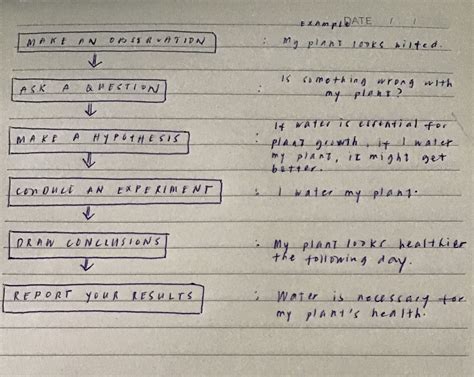 example DATE / /
MAKE AN OBSERVATION : My plant looks wilted.
ASK A QUESTION : Is something wrong with
my plant?
MAKE A HYPOTHESIS : If water is essential for
plant growth, if I water
my plant, it might get
better.
CONDUCT AN EXPERIMENT : I water my plant.
DRAW CONCLUSIONS : My plant looks healthier
the following day.
REPORT YOUR RESULTS : Water is necessary for
my plant's health.